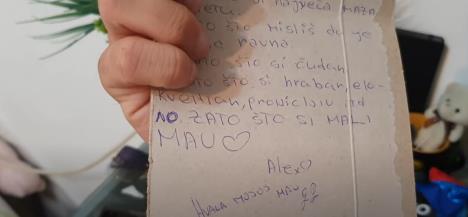 NAJVEĆA MAZA,
ŠTO MISLIŠ DA JE
RAVNA
ŠTO SI ČUDAN
ŠTO SI HRABAR, ELO-
KVENTAN,
NO, ZATO ŠTO SI MALI
MAU♡
Alex♡
HVALA MAU